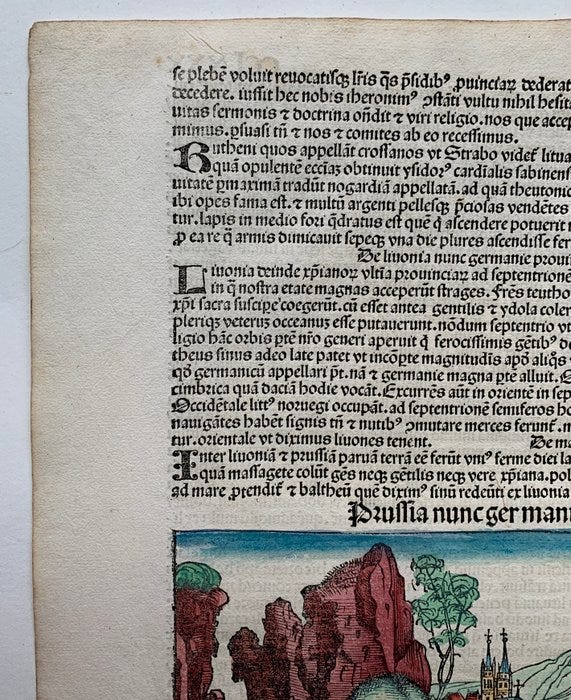 se plebē voluit reuocatisqȝ lr̄is qs p̄sidibꝰ ꝓuinciaꝝ dederat
decedere. iussit hec nobis iheronimꝰ ꝯstāti vultu nihil hesita
uitas sermonis ⁊ doctrina oñdit ⁊ viri religio. nos que accep
mimus. ꝑsuasi tñ ⁊ nos ⁊ comites ab eo recessimus.
Rutheni quos appellāt crossanos vt Strabo videt̄ litua
quā opulentē eccīaȝ obtinuit ysidorꝰ cardīalis sabinens
uitatē ꝑmaximā tradūt nogardiā appellatā. ad quā theutonic
ibi opes fama est. ⁊ multū argenti pellesqȝ p̄ciosas vendētes
tur. lapis in medio fori q̄dratus est quē q̄ ascendere potuerit n
ꝓ ea re q̄ armis dimicauit sepeqȝ vna die plures ascendisse fer
De liuonia nunc germanie proui
Liuonia deinde xp̄ianoꝝ vltīa prouinciaꝝ ad septentrionē
in q̄ nostra etate magnas acceperūt strages. Frēs teutho
xp̄i sacra suscipe coegerūt. cū esset antea gentilis ⁊ ydola coler
pleriqȝ veterū occeanū esse putauerunt. nōdum septentrio vt
ligio hāc orbis ꝑtē nr̄o generi aperuit q̄ ferocissimis gētibꝰ de
theus sinus adeo late patet vt incōpte magnitudīs apō aliq̄s v
qō germanicū appellari pt̄. nā ⁊ germanie magna ꝑtē alluit. O
cimbrica quā daciā hodie vocāt. Excurrēs aūt in orientē in sep
Occidētale litꝰ noruegi occupāt. ad septentrionē semiferos ho
nauigātes habēt signis tñ ⁊ nutibꝰ ꝯmutare merces ferunt̄. n
tur. orientale vt diximus liuones tenent. De ma
Inter liuoniā ⁊ prussiā paruā terrā eē ferūt vniꝰ ferme diei la
quā massagete colūt gēs necqȝ gētilis necqȝ vere xp̄iana. pol
ad mare ꝓtendit̄ ⁊ baltheū quē diximꝰ sinū redeūti ex liuonia
Prussia nunc germani